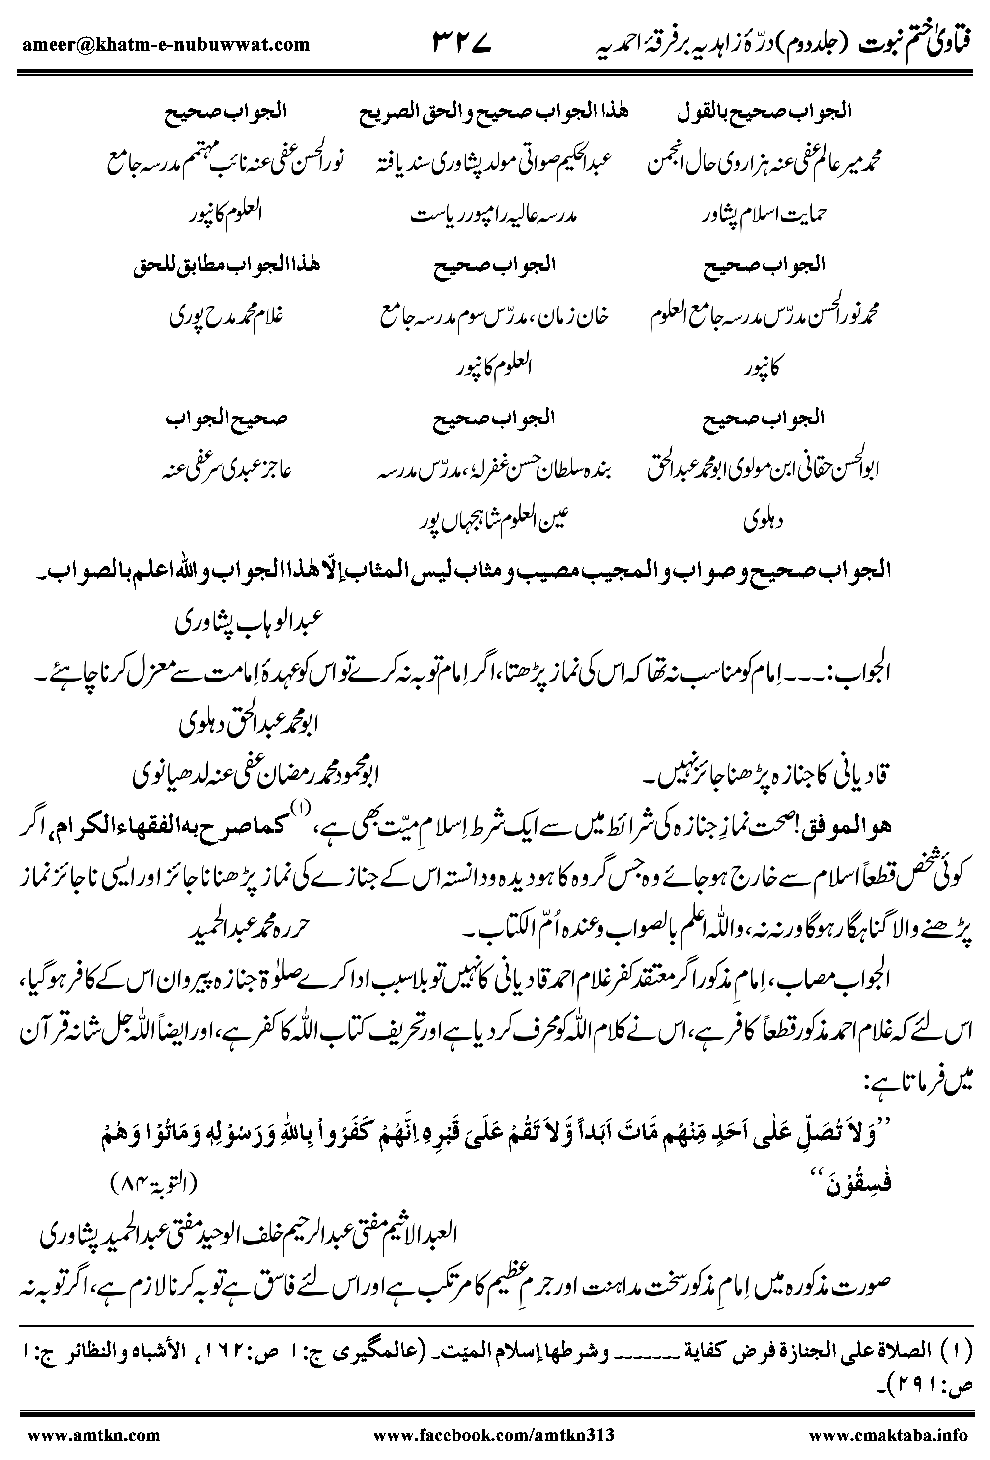 فتاویٰ ختم نبوت (جلد دوم) درّۂ زاہدیہ بر فرقۂ احمدیہ ۳۲۷ ameer@khatm-e-nubuwwat.com
الجواب صحیح بالقول هٰذا الجواب صحیح والحق الصریح الجواب صحیح
محمد میر عالم عفی عنہ ہزاروی حال انجمن عبدالحکیم صواتی مولد پشاوری سند یافتہ نور الحسن عفی عنہ نائب مہتمم مدرسہ جامع
حمایت اسلام پشاور مدرسہ عالیہ رامپور ریاست العلوم کانپور
الجواب صحیح الجواب صحیح هٰذا الجواب مطابق للحق
محمد نور الحسن مدرّس مدرسہ جامع العلوم خان زمان، مدرّس سوم مدرسہ جامع غلام محمد مدح پوری
کانپور العلوم کانپور
الجواب صحیح الجواب صحیح صحیح الجواب
ابو الحسن حقانی ابن مولوی ابو محمد عبدالحق بندہ سلطان حسن غفرلہٗ، مدرّس مدرسہ عاجز عبدی سر عفی عنہ
دہلوی عین العلوم شاہجہاں پور
الجواب صحیح وصواب والمجیب مصیب ومثاب لیس المثاب إلّا هٰذا الجواب والله اعلم بالصواب۔
عبدالوہاب پشاوری
الجواب:۔۔۔ اِمام کو مناسب نہ تھا کہ اس کی نماز پڑھتا، اگر اِمام توبہ نہ کرے تو اس کو عہدۂ اِمامت سے معزل کرنا چاہئے۔
ابو محمد عبدالحق دہلوی
قادیانی کا جنازہ پڑھنا جائز نہیں۔ ابو محمود محمد رمضان عفی عنہ لدھیانوی
ھو الموفق! صحت نمازِ جنازہ کی شرائط میں سے ایک شرط اِسلامِ میّت بھی ہے،(۱) کما صرح به الفقهاء الکرام، اگر
کوئی شخص قطعاً اسلام سے خارج ہوجائے وہ جس گروہ کا ہو دیدہ ودانستہ اس کے جنازے کی نماز پڑھنا ناجائز اور ایسی ناجائز نماز
پڑھنے والا گناہگار ہوگا ورنہ نہ، واللہ اعلم بالصواب وعندہ اُمّ الکتاب۔ حررہ محمد عبدالحمید
الجواب مصاب، اِمامِ مذکور اگر معتقد کفر غلام احمد قادیانی کا نہیں تو بلاسبب ادا کرے صلوٰۃ جنازہ پیروان اس کے کافر ہوگیا،
اس لئے کہ غلام احمد مذکور قطعاً کافر ہے، اس نے کلام اللہ کو محرف کردیا ہے اور تحریف کتاب اللہ کا کفر ہے، اور ایضاً اللہ جل شانہ قرآن
میں فرماتا ہے:
”وَلَا تُصَلِّ عَلٰى اَحَدٍ مِّنْهُم مَّاتَ اَبَداً وَّلَا تَقُمْ عَلٰى قَبْرِهٖ اِنَّهُمْ كَفَرُوا بِاللهِ وَرَسُوْلِهٖ وَمَاتُوْا وَهُمْ
فٰسِقُوْنَ“ (التوبۃ ۸۴)
العبد الاثیم مفتی عبدالرحیم خلف الوحید مفتی عبدالحمید پشاوری
صورت مذکورہ میں اِمامِ مذکور سخت مداہنت اور جرمِ عظیم کا مرتکب ہے اور اس لئے فاسق ہے توبہ کرنا لازم ہے، اگر توبہ نہ
(۱) الصلاة على الجنازة فرض كفاية ۔۔۔۔۔۔ وشرطها إسلام الميّت۔ (عالمگیری ج:۱ ص:۱۶۲، الأشباه والنظائر ج:۱
ص:۲۹۱)۔
www.amtkn.com www.facebook.com/amtkn313 www.cmaktaba.info